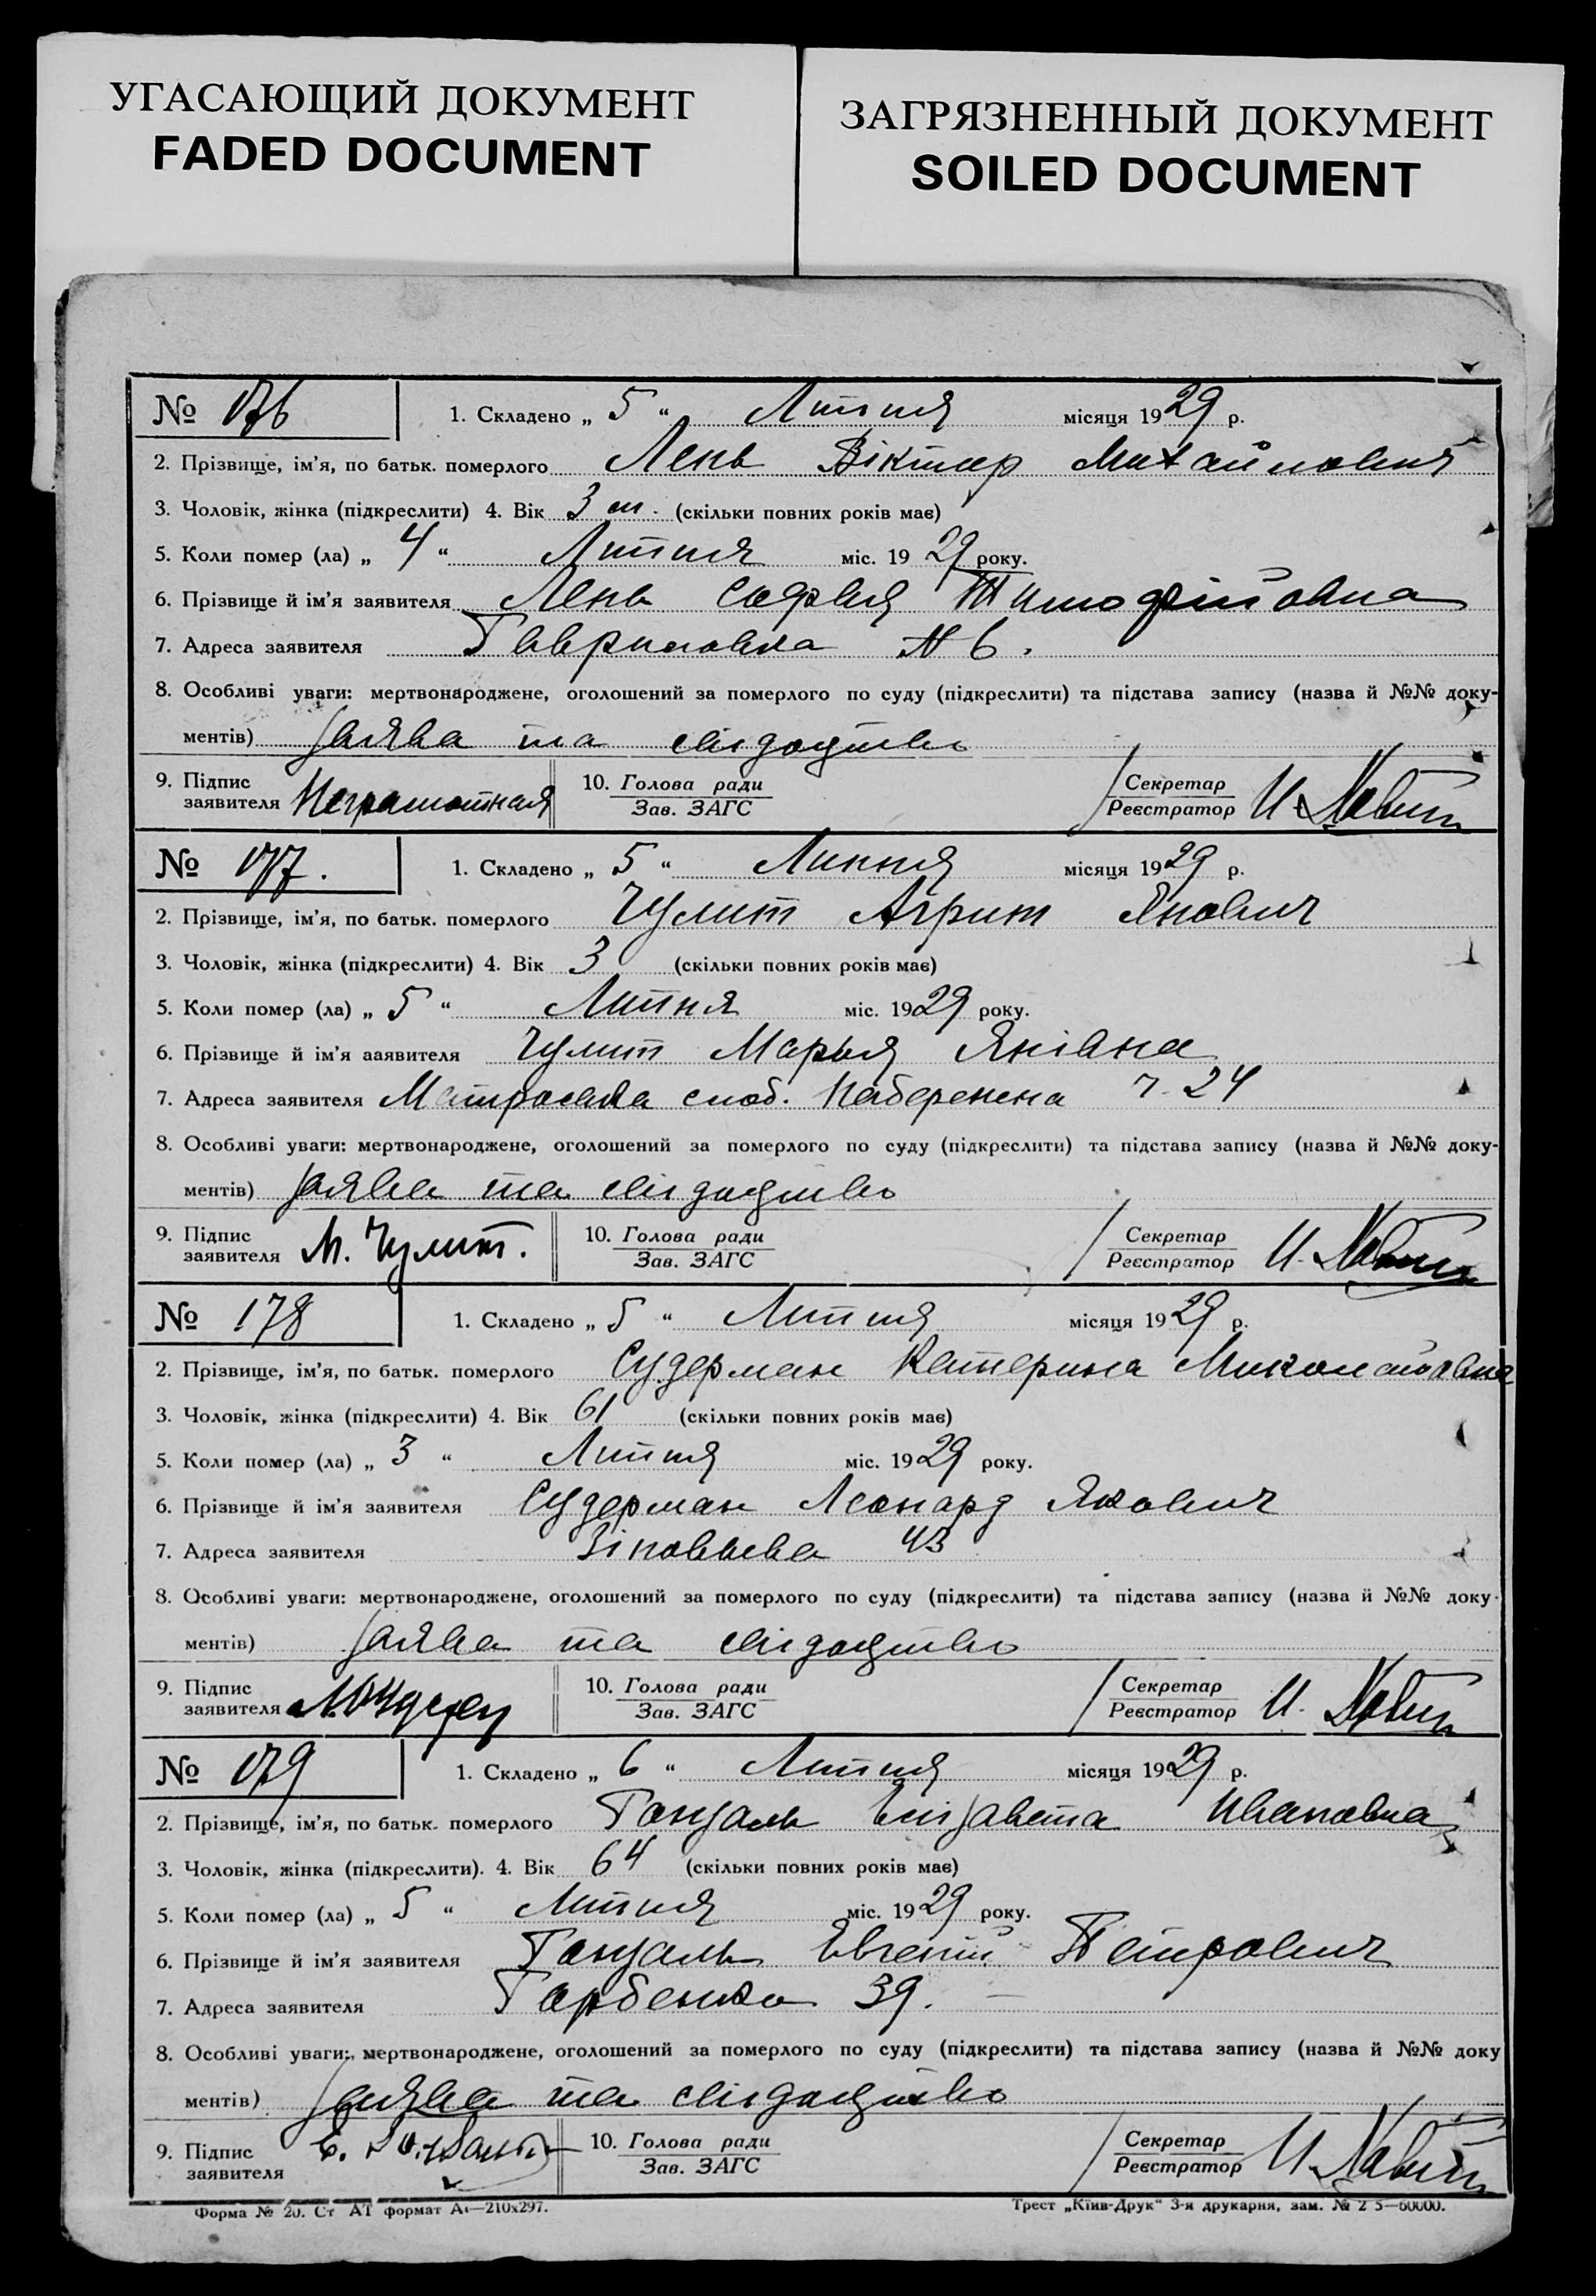 УГАСАЮЩИЙ ДОКУМЕНТ
FADED DOCUMENT
ЗАГРЯЗНЕННЫЙ ДОКУМЕНТ
SOILED DOCUMENT
№ 176
1. Складено „ 5 “ Липня місяця 1929 р.
2. Прізвище, ім’я, по батьк. померлого Лень Віктор Михайлович
3. Чоловік, жінка (підкреслити) 4. Вік 3 м. (скільки повних років має)
5. Коли помер (ла) „ 4 “ Липня міс. 1929 року.
6. Прізвище й ім’я заявителя Лень Софья Тимофійовна
7. Адреса заявителя Гавриловка № 6.
8. Особливі уваги: мертвонароджене, оголошений за померлого по суду (підкреслити) та підстава запису (назва й №№ доку-
ментів) Заява та свідоцтво
9. Підпис заявителя Неграмотная
10. Голова ради
Зав. ЗАГС
Секретар
Реєстратор И.
№ 177.
1. Складено „ 5 “ Липня місяця 1929 р.
2. Прізвище, ім’я, по батьк. померлого Чулит Янович
3. Чоловік, жінка (підкреслити) 4. Вік 3 (скільки повних років має)
5. Коли помер (ла) „ 5 “ Липня міс. 1929 року.
6. Прізвище й ім’я аявителя Чулит Марья Янівна
7. Адреса заявителя Матроська слоб. Набережна ч. 24
8. Особливі уваги: мертвонароджене, оголошений за померлого по суду (підкреслити) та підстава запису (назва й №№ доку-
ментів) Заява та свідоцтво
9. Підпис заявителя М. Чулит.
10. Голова ради
Зав. ЗАГС
Секретар
Реєстратор И.
№ 178
1. Складено „ 5 “ Липня місяця 1929 р.
2. Прізвище, ім’я, по батьк. померлого Судерман Катерина Миколаївна
3. Чоловік, жінка (підкреслити) 4. Вік 61 (скільки повних років має)
5. Коли помер (ла) „ 3 “ Липня міс. 1929 року.
6. Прізвище й ім’я заявителя Судерман Леонард Якович
7. Адреса заявителя Зіновьєва 43
8. Особливі уваги: мертвонароджене, оголошений за померлого по суду (підкреслити) та підстава запису (назва й №№ доку-
ментів) Заява та свідоцтво
9. Підпис заявителя
10. Голова ради
Зав. ЗАГС
Секретар
Реєстратор И.
№ 179
1. Складено „ 6 “ Липня місяця 1929 р.
2. Прізвище, ім’я, по батьк. померлого Гонзаль Елізавета Ивановна
3. Чоловік, жінка (підкреслити). 4. Вік 64 (скільки повних років має)
5. Коли помер (ла) „ 5 “ Липня міс. 1929 року.
6. Прізвище й ім’я заявителя Гонзаль Евгеній Петрович
7. Адреса заявителя Гарбенка 39.
8. Особливі уваги: мертвонароджене, оголошений за померлого по суду (підкреслити) та підстава запису (назва й №№ доку
ментів) Заява та свідоцтво
9. Підпис заявителя Е.
10. Голова ради
Зав. ЗАГС
Секретар
Реєстратор И.
Форма № 20. Ст АТ формат А4—210х297.
Трест „Київ-Друк“ 3-я друкарня, зам. № 2 5—60000.